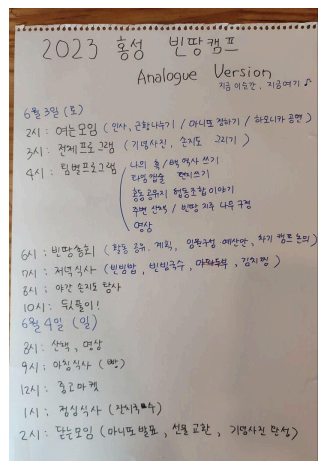 2023 홍성 빈땅캠프
Analogue Version
지금 이순간, 지금여기♪
6월3일 (토)
2시: 여는모임 (인사, 근황나누기 / 마니또 정하기 / 하모니카 공연)
3시: 전체프로그램 (기념사진, 손지도 그리기)
4시: 팀별프로그램
나의 흑/백 역사 쓰기
타임캡슐 편지쓰기
공동공유지 협동조합 이야기
주변 산책 / 빈땅 지주 나무 구경
명상
6시: 빈땅총회 (활동 공유, 계획, 임원구성, 예산안, 차기 캠프 논의)
7시: 저녁식사 (빈빙밥, 빈빙국수, 김치찜)
8시: 야간 손지도 탐사
10시: 뒷풀이!
6월4일 (일)
8시: 산책, 명상
9시: 아침식사 (빵)
12시: 중고마켓
1시: 점심식사 (잔치국수)
2시: 닫는모임 (마니또발표, 선물교환, 기념사진 탄성)